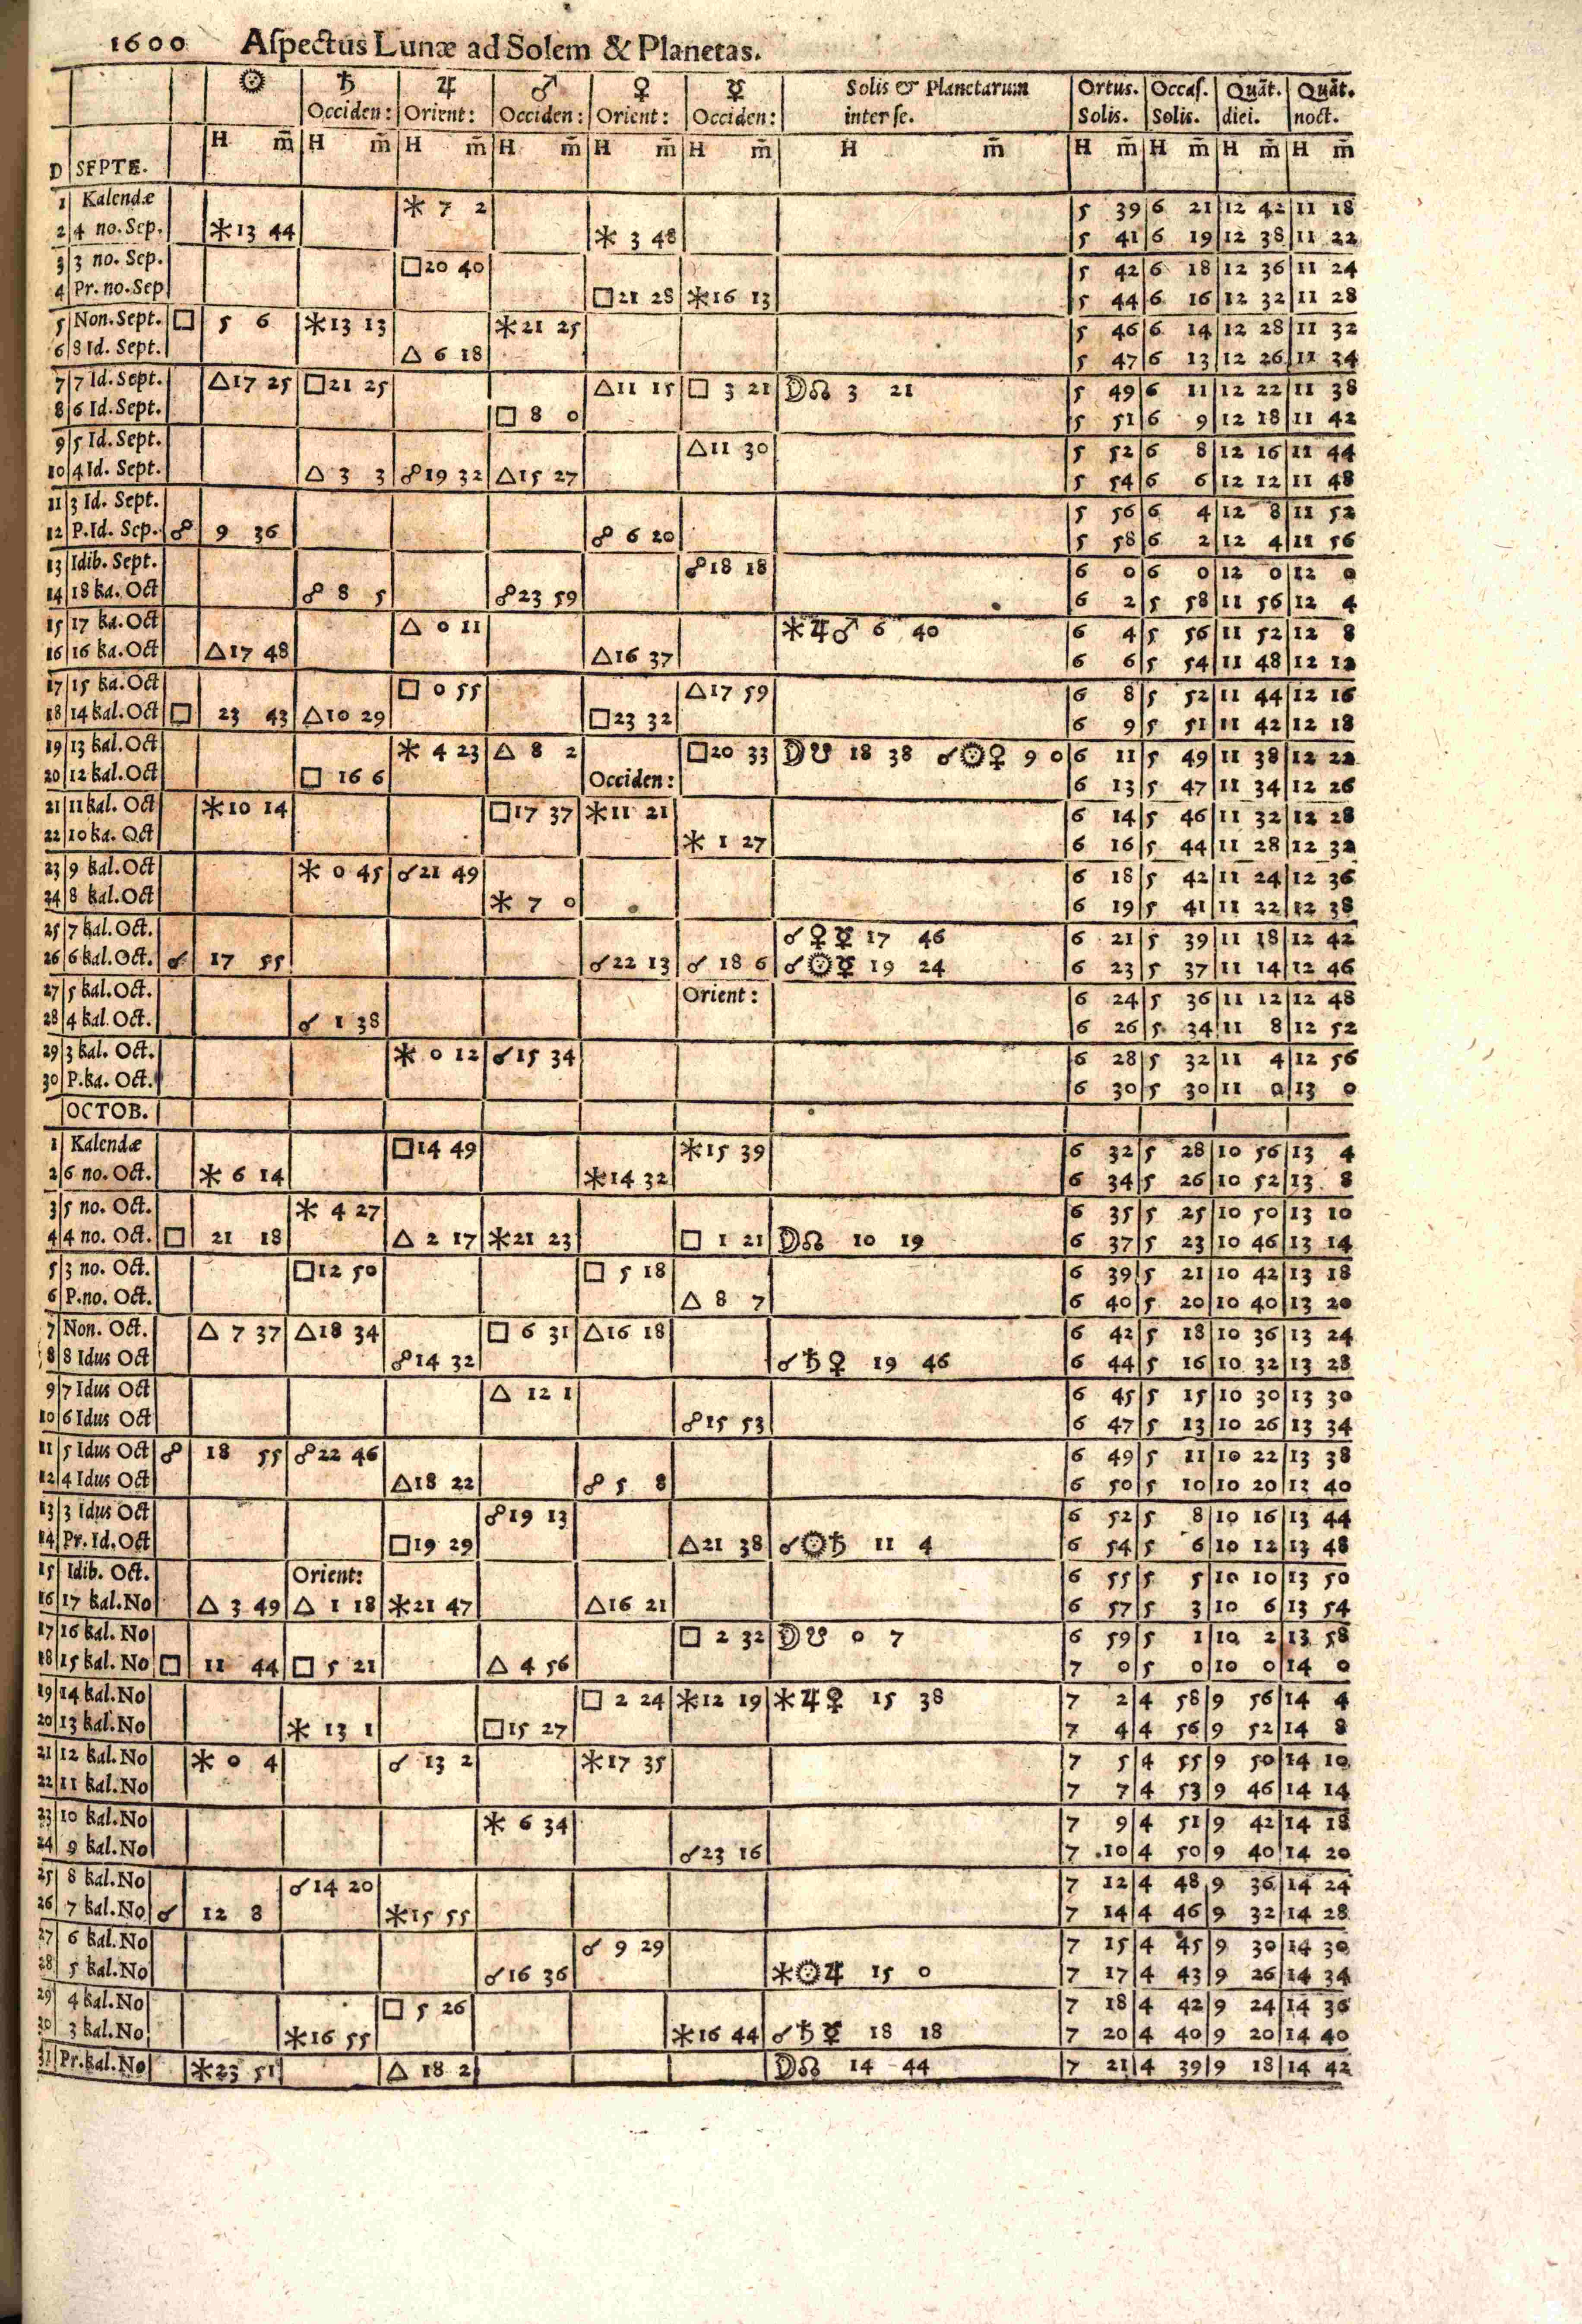 1600 Aſpectus Lunæ ad Solem & Planetas.
☉ ♄ ♃ ♂ ♀ ☿ Solis & Planetarum Ortus. Occaſ. Quãt. Quãt.
Occiden: Orient: Occiden: Orient: Occiden: inter ſe. Solis. Solis. diei. noct.
H m̄ H m̄ H m̄ H m̄ H m̄ H m̄ H m̄ H m̄ H m̄ H m̄ H m̄
D SEPTE.
1 Kalendæ ⚹ 7 2 5 39 6 21 12 42 11 18
2 4 no. Sep. ⚹ 13 44 ⚹ 3 48 5 41 6 19 12 38 11 22
3 3 no. Sep. □ 20 40 5 42 6 18 12 36 11 24
4 Pr. no. Sep □ 21 28 ⚹ 16 13 5 44 6 16 12 32 11 28
5 Non. Sept. □ 5 6 ⚹ 13 13 ⚹ 21 25 5 46 6 14 12 28 11 32
6 8 Id. Sept. △ 6 18 5 47 6 13 12 26 11 34
7 7 Id. Sept. △ 17 25 □ 21 25 △ 11 15 □ 3 21 ☽☊ 3 21 5 49 6 11 12 22 11 38
8 6 Id. Sept. □ 8 0 5 51 6 9 12 18 11 42
9 5 Id. Sept. △ 11 30 5 52 6 8 12 16 11 44
10 4 Id. Sept. △ 3 3 ☍ 19 32 △ 15 27 5 54 6 6 12 12 11 48
11 3 Id. Sept. 5 56 6 4 12 8 11 52
12 P. Id. Sep. ☍ 9 36 ☍ 6 20 5 58 6 2 12 4 11 56
13 Idib. Sept. ☍ 18 18 6 0 6 0 12 0 12 0
14 18 ka. Oct ☍ 8 5 ☍ 23 59 6 2 5 58 11 56 12 4
15 17 ka. Oct △ 0 11 ⚹ ♃ ♂ 6 40 6 4 5 56 11 52 12 8
16 16 ka. Oct △ 17 48 △ 16 37 6 6 5 54 11 48 12 12
17 15 ka. Oct □ 0 55 △ 17 59 6 8 5 52 11 44 12 16
18 14 kal. Oct □ 23 43 △ 10 29 □ 23 32 6 9 5 51 11 42 12 18
19 13 kal. Oct ⚹ 4 23 △ 8 2 □ 20 33 ☽☋ 18 38 ☌☉♀ 9 0 6 11 5 49 11 38 12 22
20 12 kal. Oct □ 16 6 Occiden: 6 13 5 47 11 34 12 26
21 11 kal. Oct ⚹ 10 14 □ 17 37 ⚹ 11 21 6 14 5 46 11 32 12 28
22 10 ka. Oct ⚹ 1 27 6 16 5 44 11 28 12 32
23 9 kal. Oct ⚹ 0 45 ☌ 21 49 6 18 5 42 11 24 12 36
24 8 kal. Oct ⚹ 7 0 6 19 5 41 11 22 12 38
25 7 kal. Oct. ☌♀☿ 17 46 6 21 5 39 11 18 12 42
26 6 kal. Oct. ☌ 17 55 ☌ 22 13 ☌ 18 6 ☌☉☿ 19 24 6 23 5 37 11 14 12 46
27 5 kal. Oct. Orient: 6 24 5 36 11 12 12 48
28 4 kal. Oct. ☌ 1 38 6 26 5 34 11 8 12 52
29 3 kal. Oct. ⚹ 0 12 ☌ 15 34 6 28 5 32 11 4 12 56
30 P. ka. Oct. 6 30 5 30 11 0 13 0
OCTOB.
1 Kalendæ □ 14 49 ⚹ 15 39 6 32 5 28 10 56 13 4
2 6 no. Oct. ⚹ 6 14 ⚹ 14 32 6 34 5 26 10 52 13 8
3 5 no. Oct. ⚹ 4 27 6 35 5 25 10 50 13 10
4 4 no. Oct. □ 21 18 △ 2 17 ⚹ 21 23 □ 1 21 ☽☊ 10 19 6 37 5 23 10 46 13 14
5 3 no. Oct. □ 12 50 □ 5 18 6 39 5 21 10 42 13 18
6 P. no. Oct. △ 8 7 6 40 5 20 10 40 13 20
7 Non. Oct. △ 7 37 △ 18 34 □ 6 31 △ 16 18 6 42 5 18 10 36 13 24
8 8 Idus Oct ☍ 14 32 ☌♄♀ 19 46 6 44 5 16 10 32 13 28
9 7 Idus Oct △ 12 1 6 45 5 15 10 30 13 30
10 6 Idus Oct ☍ 15 53 6 47 5 13 10 26 13 34
11 5 Idus Oct ☍ 18 55 ☍ 22 46 6 49 5 11 10 22 13 38
12 4 Idus Oct △ 18 22 ☍ 5 8 6 50 5 10 10 20 13 40
13 3 Idus Oct ☍ 19 13 6 52 5 8 10 16 13 44
14 Pr. Id. Oct □ 19 29 △ 21 38 ☌☉♄ 11 4 6 54 5 6 10 12 13 48
15 Idib. Oct. Orient: 6 55 5 5 10 10 13 50
16 17 kal. No △ 3 49 △ 1 18 ⚹ 21 47 △ 16 21 6 57 5 3 10 6 13 54
17 16 kal. No □ 2 32 ☽☋ 0 7 6 59 5 1 10 2 13 58
18 15 kal. No □ 11 44 □ 5 21 △ 4 56 7 0 5 0 10 0 14 0
19 14 kal. No □ 2 24 ⚹ 12 19 ⚹♃♀ 15 38 7 2 4 58 9 56 14 4
20 13 kal. No ⚹ 13 1 □ 15 27 7 4 4 56 9 52 14 8
21 12 kal. No ⚹ 0 4 ☌ 13 2 ⚹ 17 35 7 5 4 55 9 50 14 10
22 11 kal. No 7 7 4 53 9 46 14 14
23 10 kal. No ⚹ 6 34 7 9 4 51 9 42 14 18
24 9 kal. No ☌ 23 16 7 10 4 50 9 40 14 20
25 8 kal. No ☌ 14 20 7 12 4 48 9 36 14 24
26 7 kal. No ☌ 12 8 ⚹ 15 55 7 14 4 46 9 32 14 28
27 6 kal. No ☌ 9 29 7 15 4 45 9 30 14 30
28 5 kal. No ☌ 16 36 ⚹☉♃ 15 0 7 17 4 43 9 26 14 34
29 4 kal. No □ 5 26 7 18 4 42 9 24 14 36
30 3 kal. No ⚹ 16 55 ⚹ 16 44 ☌♄☿ 18 18 7 20 4 40 9 20 14 40
31 Pr. kal. No ⚹ 23 51 △ 18 2 ☽☊ 14 44 7 21 4 39 9 18 14 42